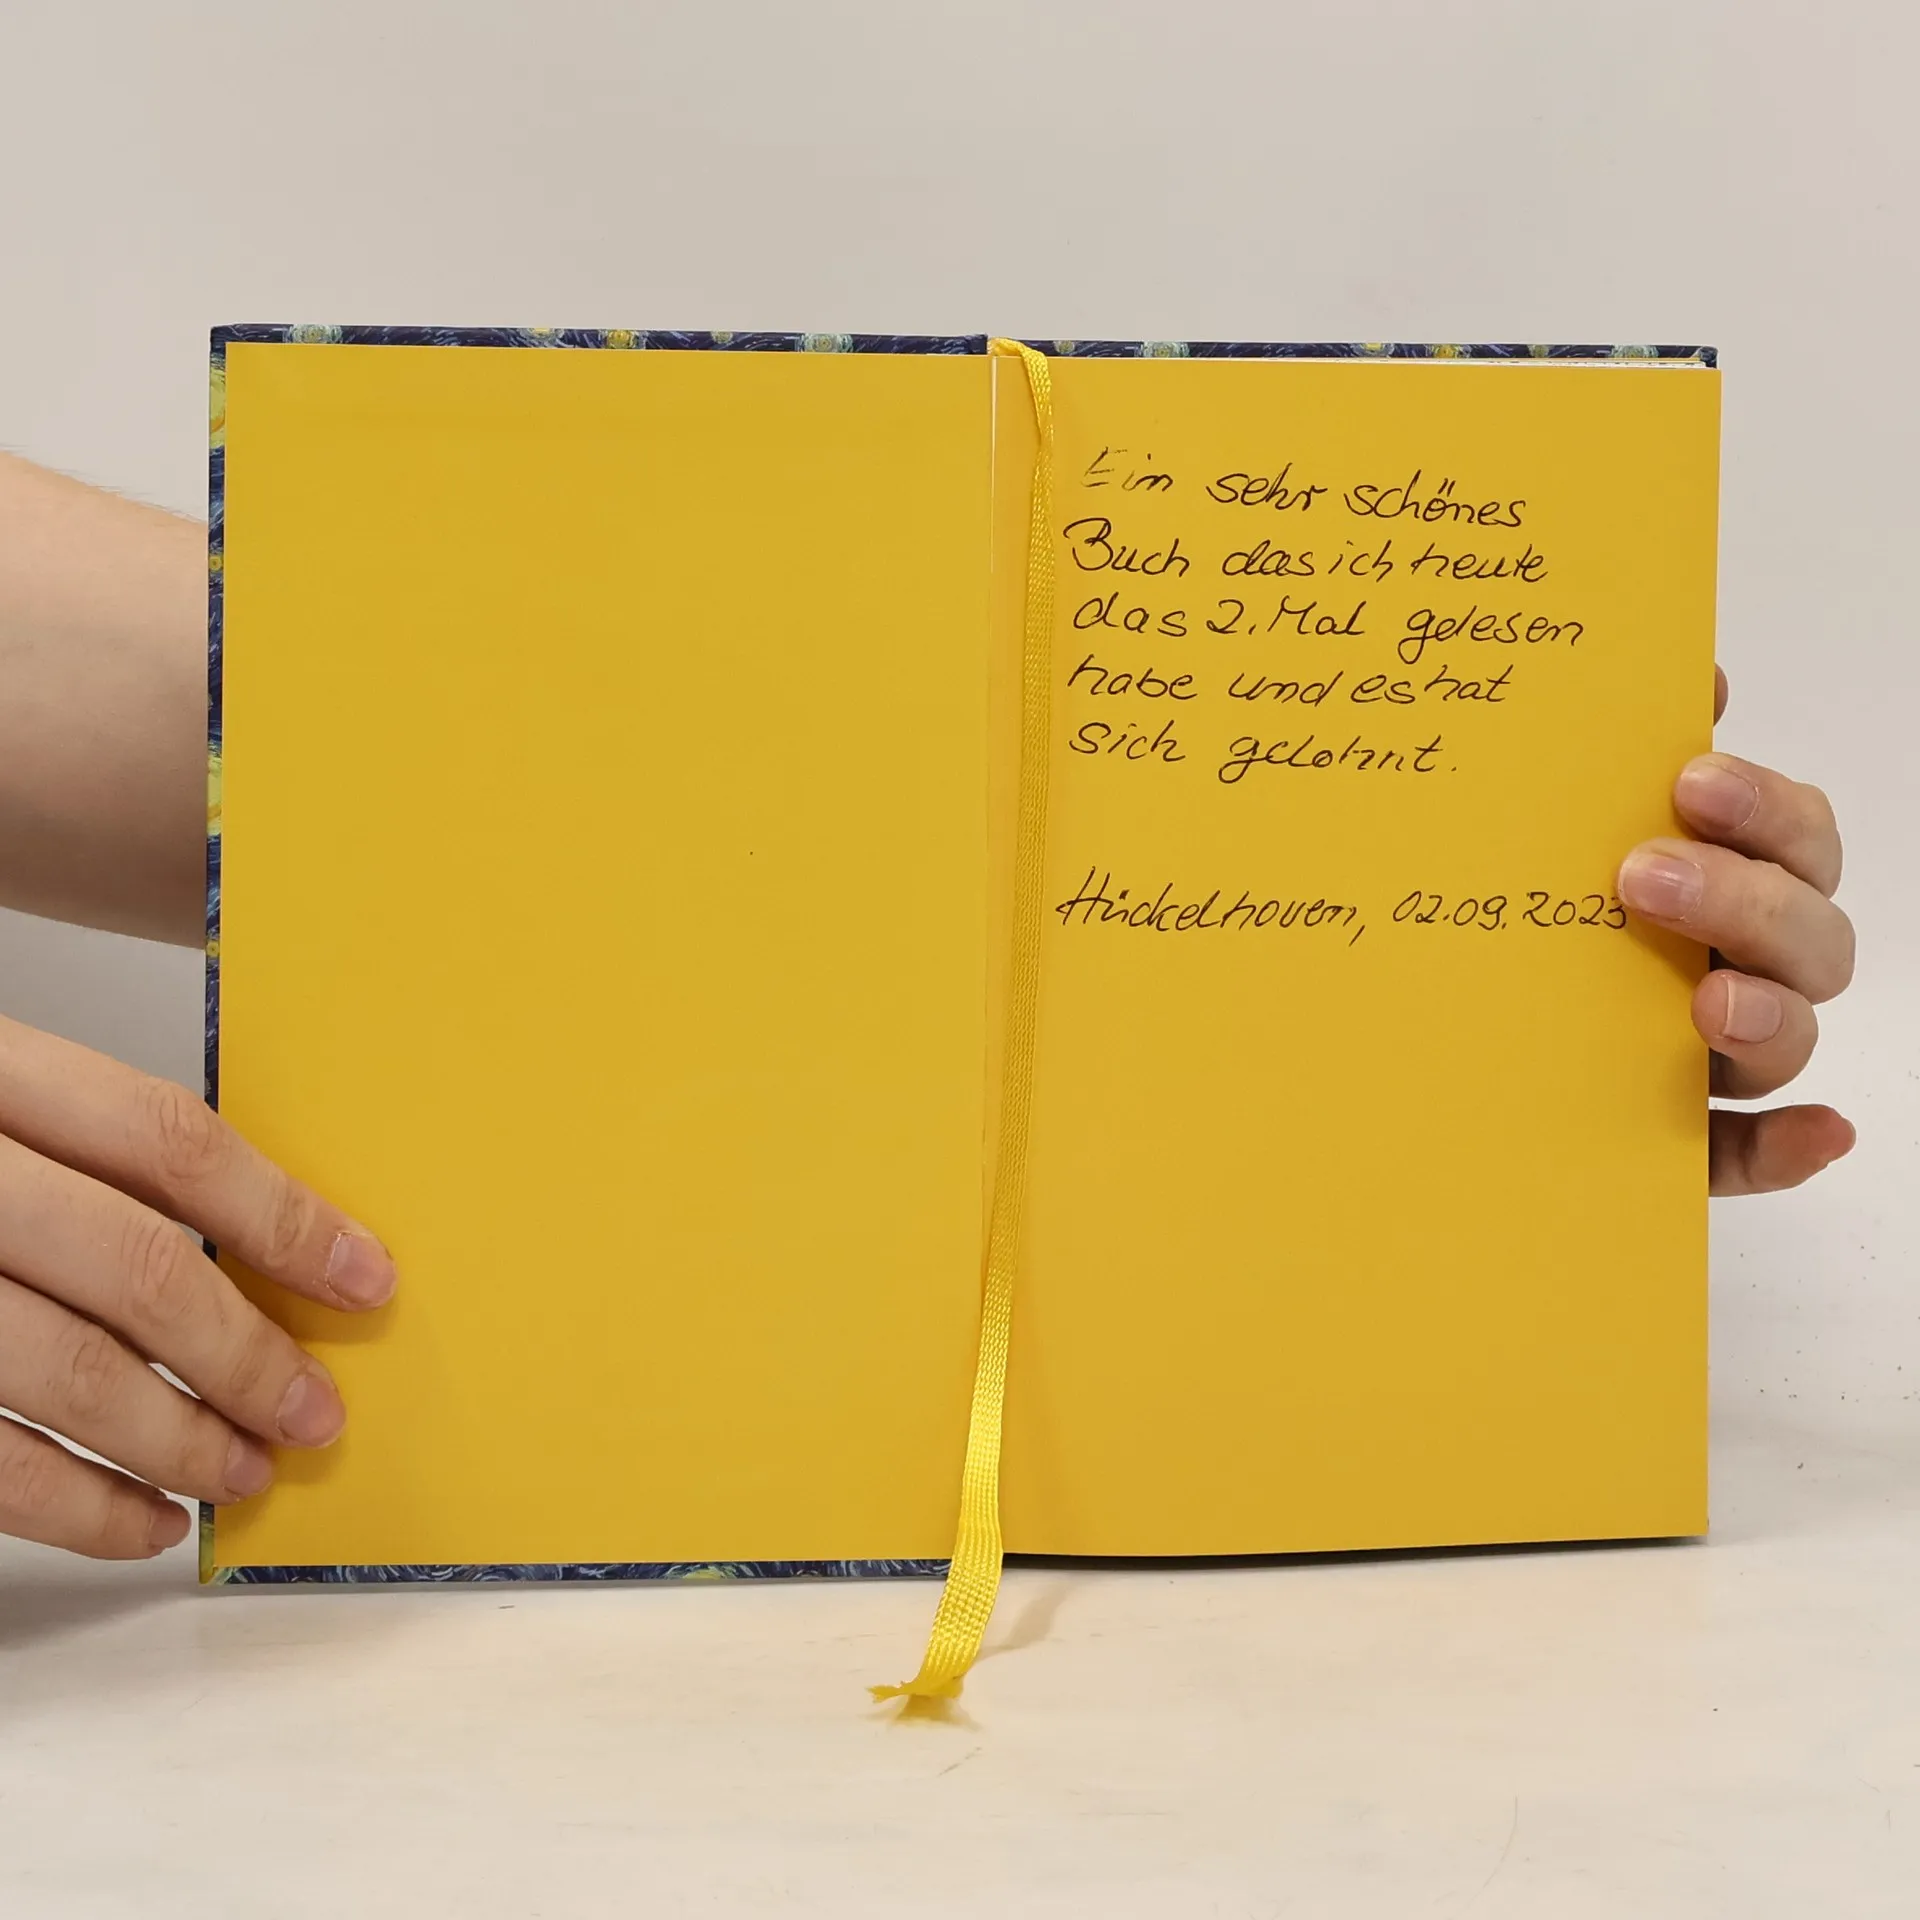 Ein sehr schönes
Buch das ich heute
das 2. Mal gelesen
habe und es hat
sich gelohnt.
Hückelhoven, 02.09.2023